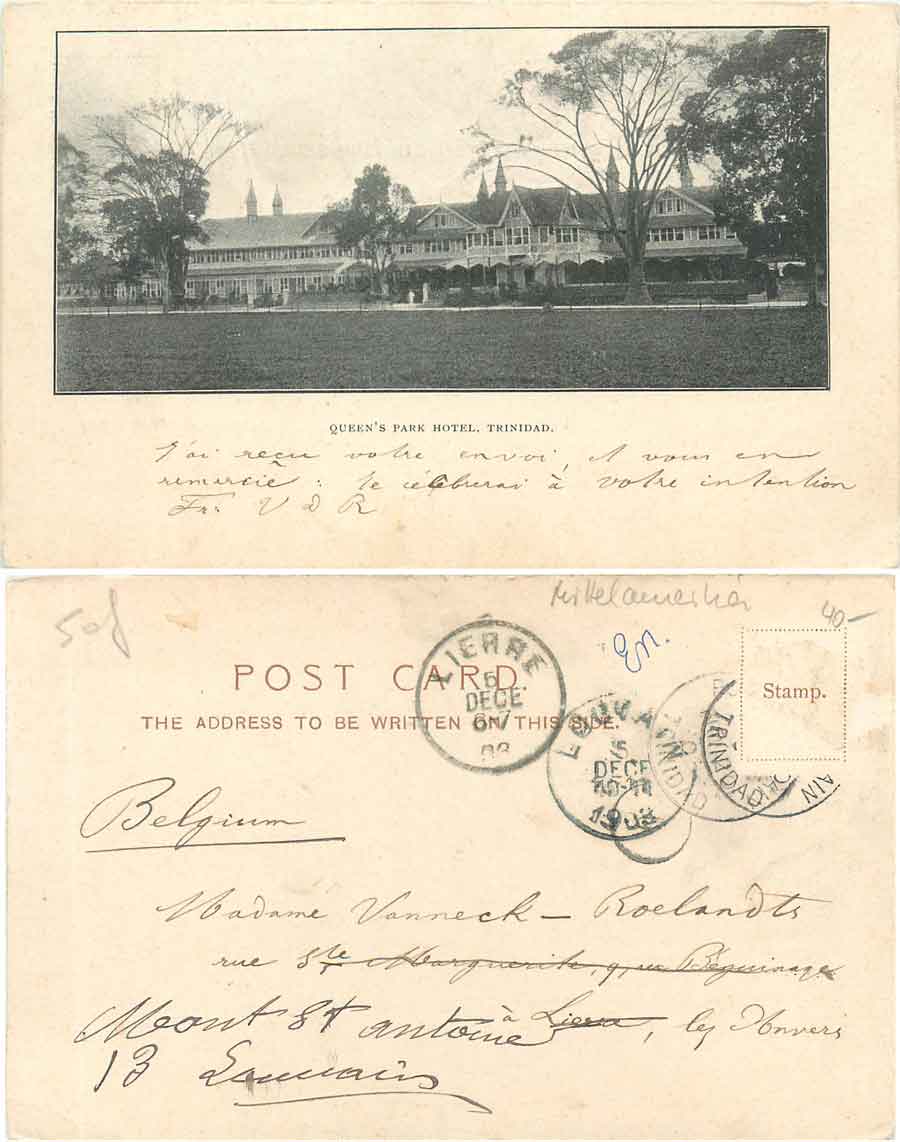 QUEEN'S PARK HOTEL, TRINIDAD.
J'ai reçu votre envoi, et vous en
remercie : le célébrerai à votre intention
Fr. V D R
Mittelamerika
50f
40-
En.
POST CARD.
THE ADDRESS TO BE WRITTEN ON THIS SIDE.
Stamp.
LIERRE
5
DECE
6-7
03
LOUVAIN
5
DECE
1903
TRINIDAD
TRINIDAD
AIN
Belgium
Madame Vanneck - Roelandts
rue Ste Marguerite, Béguinage
Mont St Antoine à Lierre, lez Anvers
13 Louvain